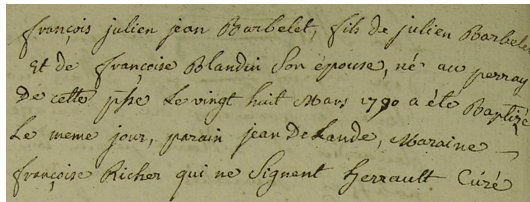 françois julien jean Barbelet, fils de julien Barbelet
Et de françoise Blandin Son épouse, né au perray
De cette pse Le vingt huit Mars 1790 a été Baptizé
Le meme jour, parain jean deLande, Maraine
françoise Richer qui ne Signent herrault Curé